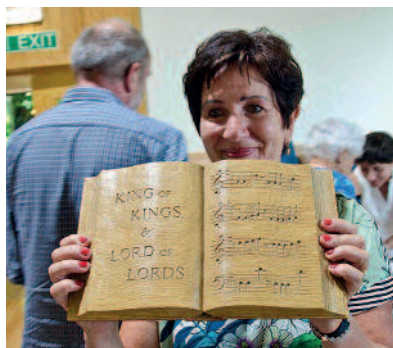 EXIT
KING OF
KINGS
&
LORD OF
LORDS